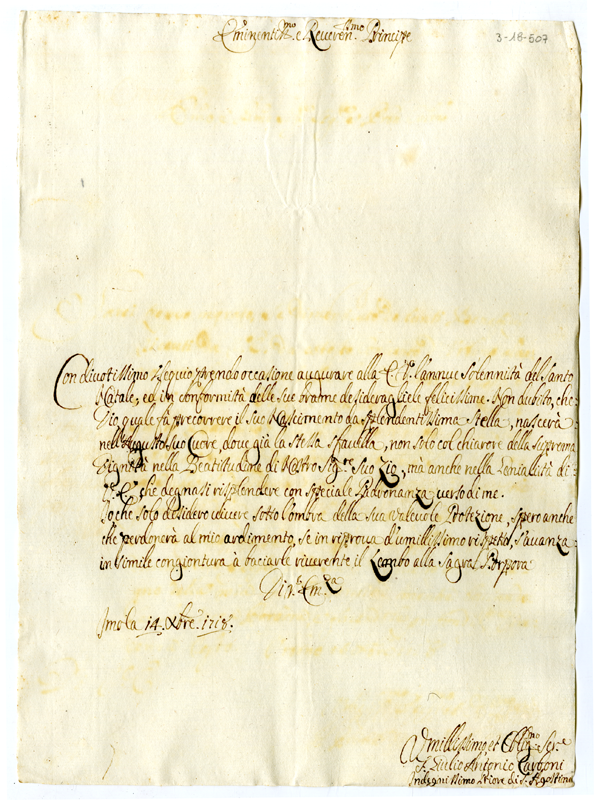 Eminentmo e Reverenmo Principe
3-18-607
Con divotissimo ossequio prendo occasione augurare alla E.V. l'annue solennità del Santo
Natale, ed in conformità delle sue brame desideragliele felicissime. Non dubito, che
Dio quale fà precorrere il suo Nascimento da splendentissima stella, nascerà
nell'Augusto suo Cuore, dove già la stella sfavilla, non solo col chiarore della suprema
Dignità nella Beatitudine di Nostro Sigre suo Zio, mà anche nella Genialità di
V.E. che degnasi risplendere con speciale Padronanza verso di me.
Io che solo desidero vivere sotto l'ombra della sua valevole Protezione, spero anche
che perdonerà al mio ardimento, se in riprova d'umilissimo rispetto, s'avanza
in simile congiontura à baciarle riverente il Lembo alla Sagra Porpora
Di V. Emza
Imola 14. Xbre. 1718.
Umillissimo et Obligmo Serre
F. Giulio Antonio
Indegnissimo Priore di S. Agostino